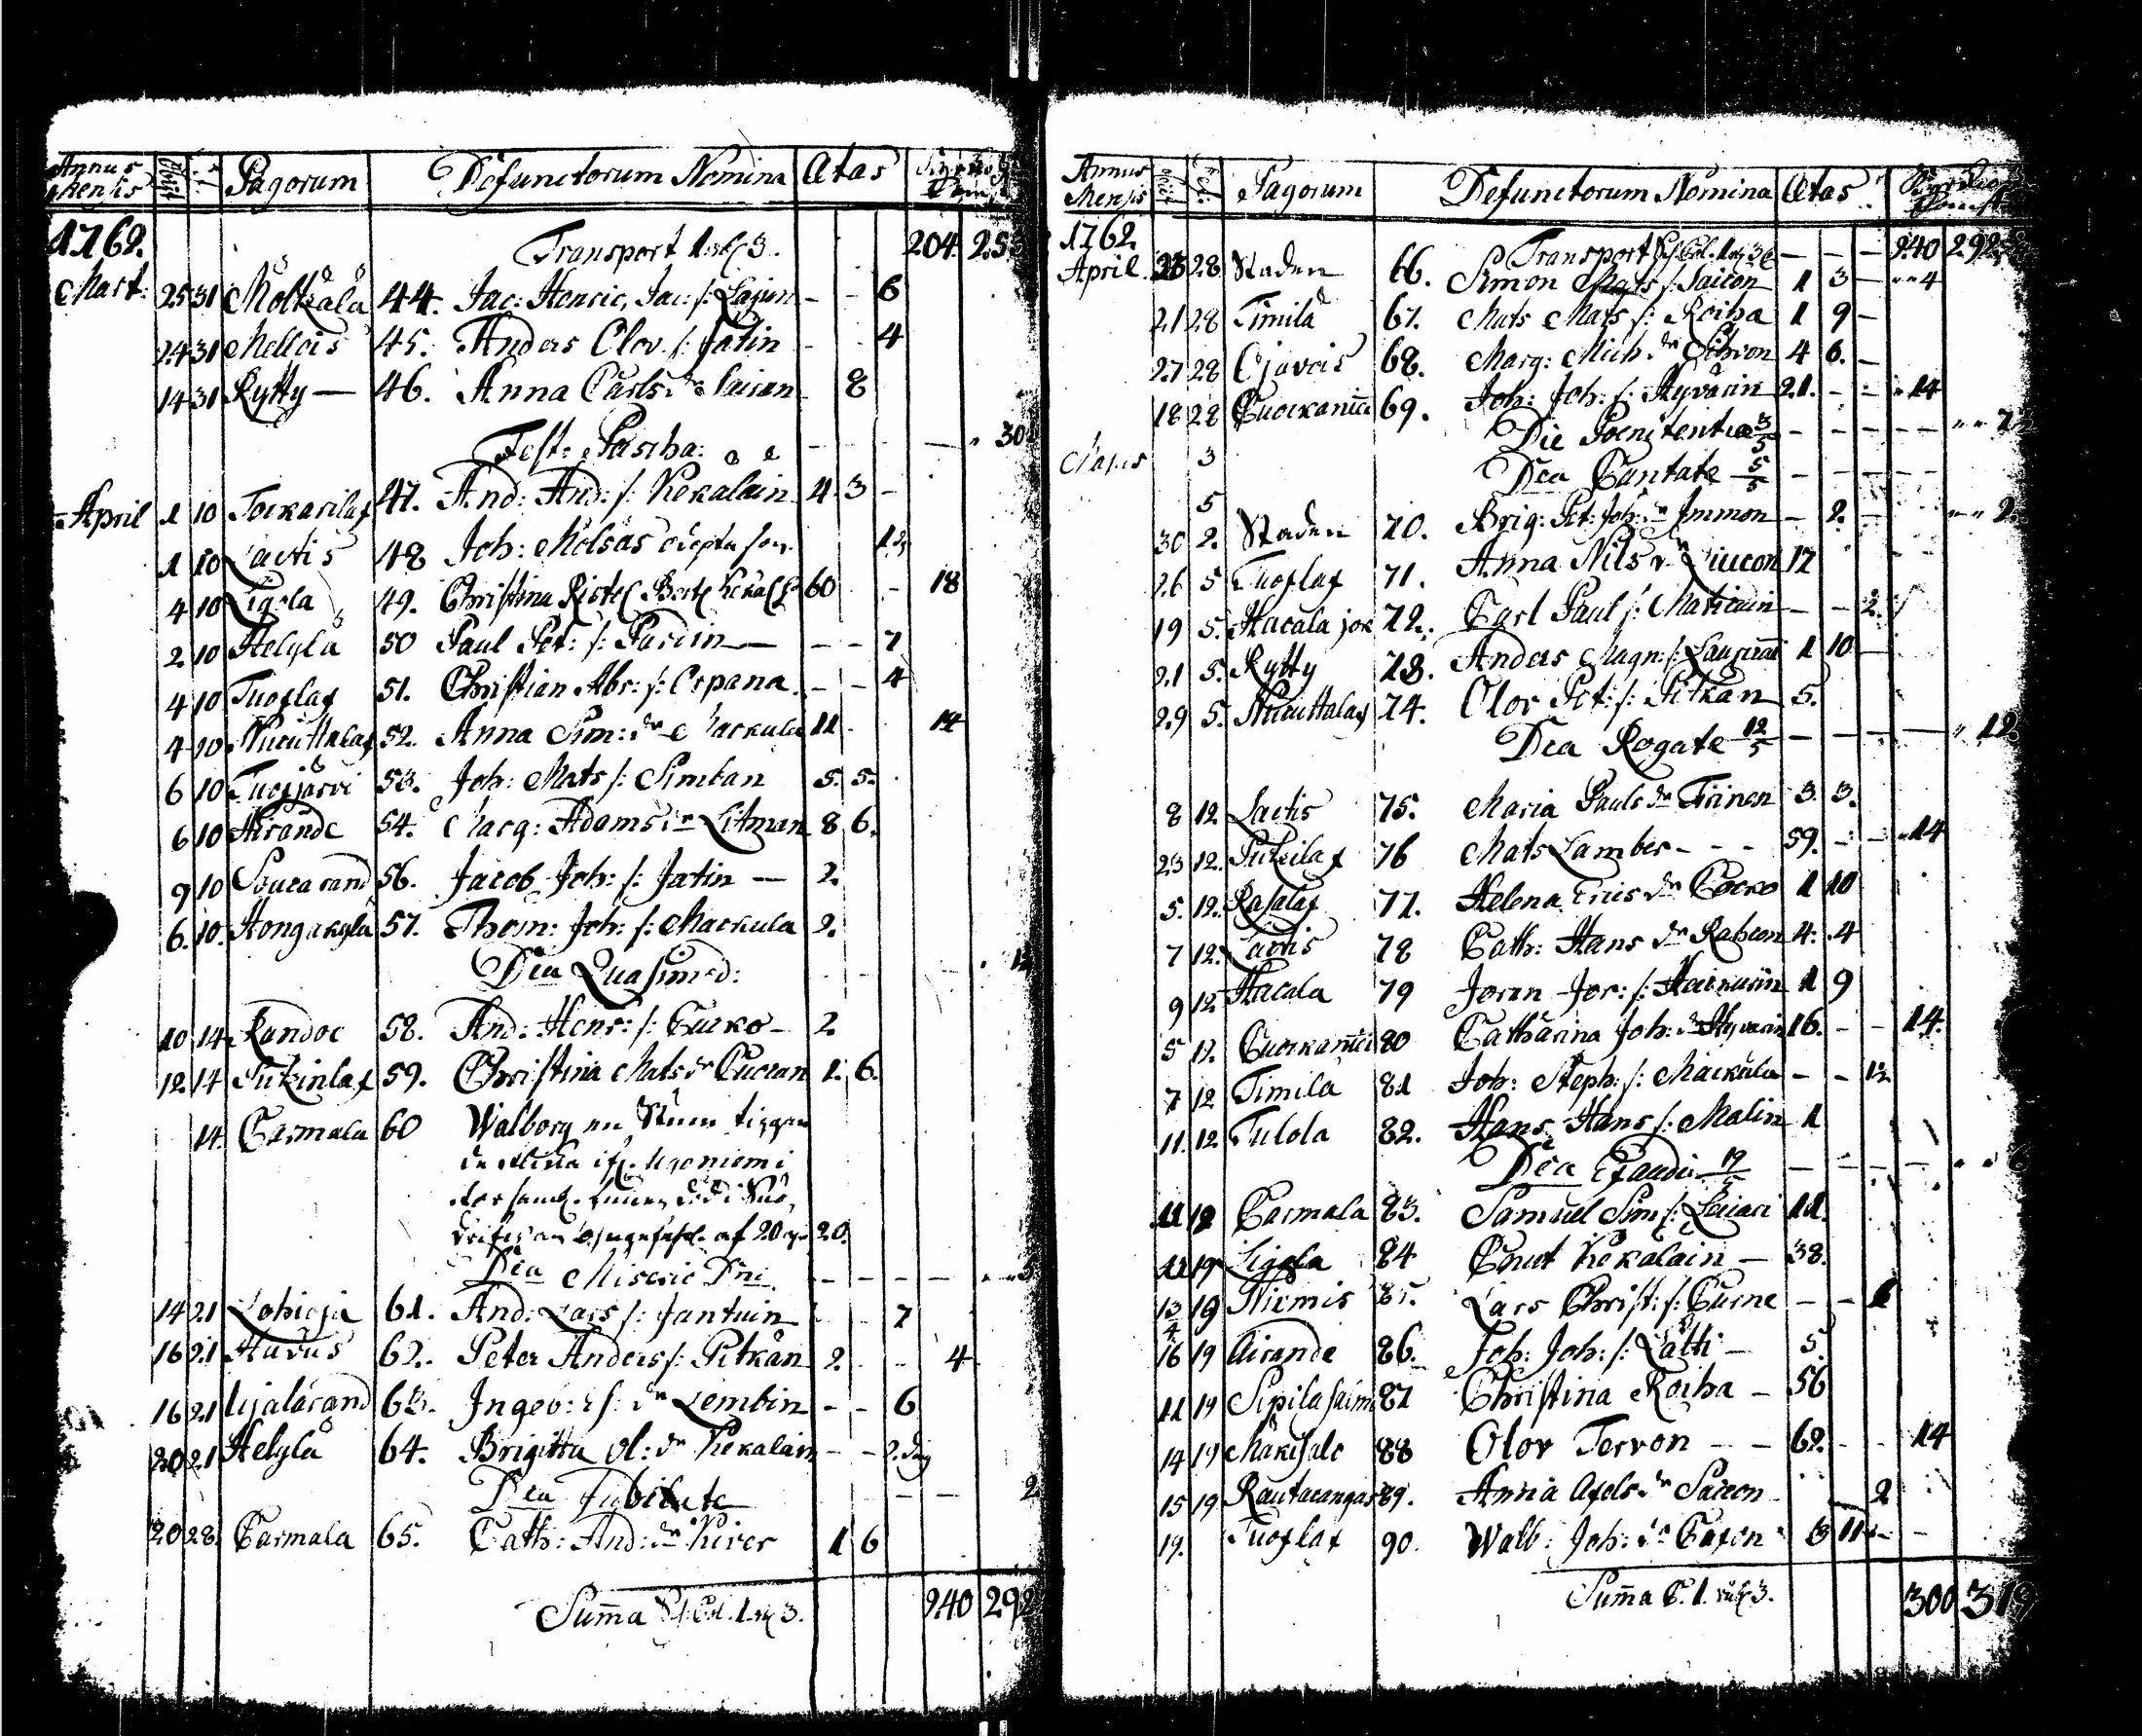 Annus Mensis Pagorum Defunctorum Nomina Ætas
1762. Transport 204. 253
Mart: 25 31 Mötkälä 44. Jac: Henric, Jac: s: Lajun - - 6
24 31 Mellois 45. Anders Olov. s: Jatin - - 4
14 31 Rytty — 46. Anna Carls dr Pairan 8
Fest: Pascha: - - - — 30
April 1 10 Tockarilax 47. And: And: s: Kekalain 4 3 -
1 10 Lactis 48 Joh: Mölsäs 12
4 10 Ligola 49. Christina 60 - 18
2 10 Helylä 50 Paul Pet: s: Parcin — - - 7
4 10 Tuoslax 51. Christian Abr: s: Orpana. - - 4
4 10 Nucuttalax 52. Anna Sim: dr Mackula 11. 14
6 10 Tuosjärvi 53. Joh: Mats s: Simban 5. 5.
6 10 Hirande 54. Marg: Adams dr Litman 8 6.
9 10 Soucarand 56. Jacob Joh: s: Jatin — 2.
6. 10. Hongakylä 57. Thom: Joh: s: Mackula 2.
Dca Quasimod:
10 14 Randoe 58. And: Henr: s: Cucko - 2
12 14 Putzinlax 59. Christina Mats dr Cucean 1. 6.
14. Carmala 60 Walborg en
20.
Dca Miseric Dni - - - —
14 21 Lohioja 61. And: Lars s: Jantuin 7
16 21 Haukus 62. Peter Anders s: Pitkän 2. - - 4
16 21 Ujalarand 63. Ingeb: dr Lembin - - 6
20 21 Helylä 64. Brigitta Ol: dr Kekalain - - 2. dag
Dca Jubilate - — 2
20 28. Carmala 65. Cath: And: dr Kirer 1 6
Summa 240 292
Annus Mensis Pagorum Defunctorum Nomina Ætas
1762. Transport — - - 240 292
April. 23 28 Staden 66. Simon Mats s: Saicon 1 3 — 4
21 28 Timilä 67. Mats Mats s: Roiha 1 9 -
27 28 Ojavois 68. Marg: Mich. dr Sihvon 4 6. -
18 28 69. Joh: Joh: s: Hyvärin 21. - - 14
Die Poenitentiæ 3/5 - - - - 7
Majus 3 Dca Cantate 5/5 - - - -
5
30 2. Staden 70. Brig: Pet: Joh: dr Immon - 2. - 2
26 5 Tuoslax 71. Anna Nils dr Liucon 17
19 5. Hacala jok 72. Carl Paul s: Maticain - - 2.
21 5. Rytty 73. Anders Magn: s: 1 10 -
29 5. Nucuttalax 74. Olov Pet: s: Pitkän 5.
Dca Rogate 12/5 - - - — 12
8 12 Lactis 75. Maria Pauls dr Tirinen 3. 3.
23 12. Putzilax 76 Mats Lamber - - - 59. - - 14
5. 12. Rasalax 77. Helena Eriis dr Cocko 1 10
7 12. Lactis 78 Cath: Hans dr Rahcon 4. 4
9 12 Hacala 79 Joran Jor: s: Hackurin 1 9
5 12. 80 Catharina Joh: dr Hyvärin 16. - - 14.
7 12 Timilä 81 Joh: Steph: s: Mackula - - 12
11. 12 Tulola 82. Hans Hans s: Malin 1
Dca Exaudi 19/5 - - - -
11 19 Carmala 83. Samuel Sim s: Laiari 11.
12 19 Ligola 84 Cnut Kekalain — 38.
13/4 19 Niemis 85. Lars Christ: s: Curne - - 1
16 19 Airande 86. Joh: Joh: s: Lätti - 5.
11 19 87 Christina Roiha - 56
14 19 Mäkisalo 88 Olov Tervon - - 62. - - 14
15 19 Rautacangas 89. Anna Axels dr Saicon - 2
19. Tuoslax 90. Walb: Joh: dr Caxon 3 11 - -
Summa 300 319